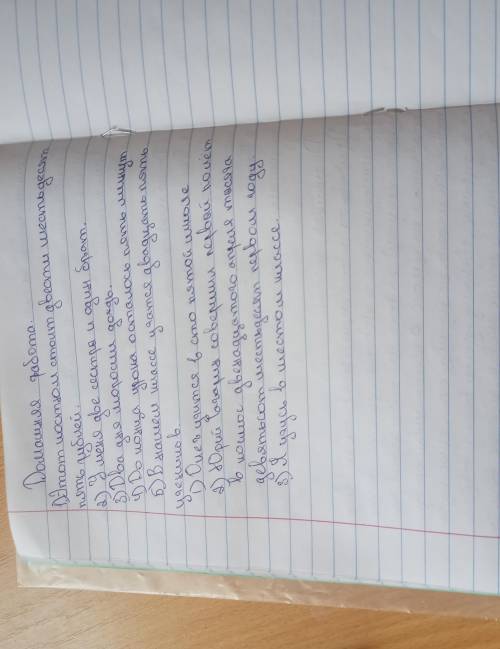 Домашняя работа.
1) Этот костюм стоит двести шестьдесят
пять рублей.
2) У меня две сестры и один брат.
3) Два дня моросил дождь.
4) До конца урока осталось пять минут.
5) В нашем классе учатся двадцать пять
учеников.
1) Олег учится в сто пятой школе
2) Юрий Гагарин совершил первый полёт
в космос двенадцатого апреля тысяча
девятьсот шестьдесят первом году
3) Я учусь в шестом классе.